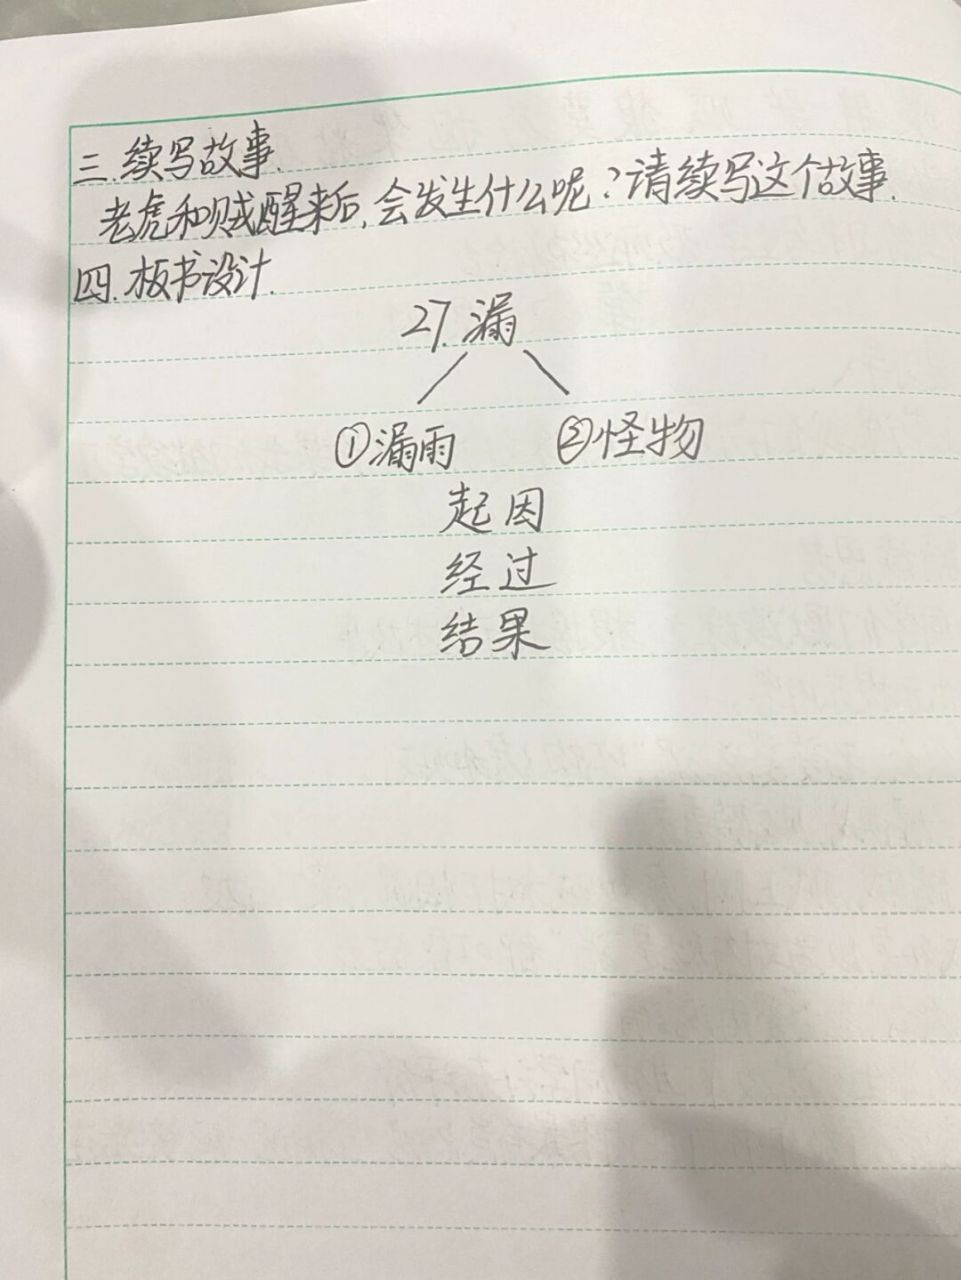 三.续写故事.
老虎和贼醒来后,会发生什么呢?请续写这个故事.
四.板书设计.
27.漏
①漏雨 ②怪物
起因
经过
结果